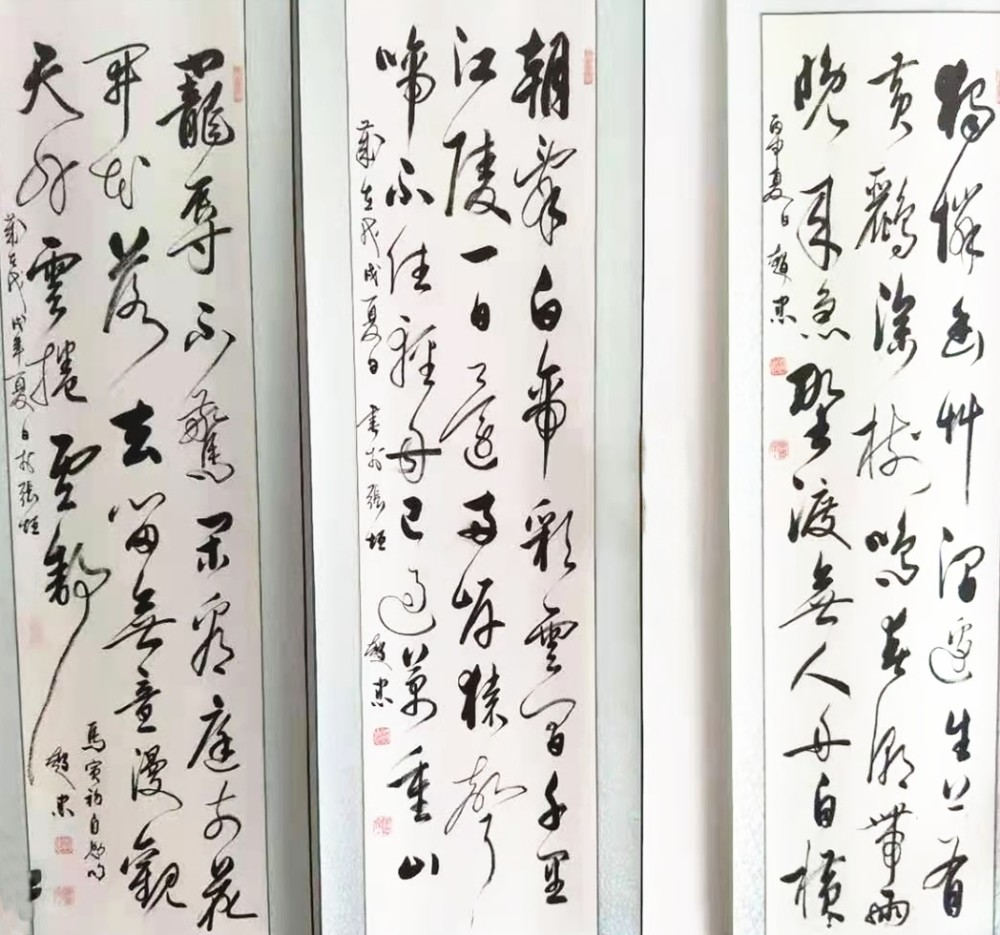 獨憐幽艸澗邊生上有
黃鸝深樹鳴春潮帶雨
晚來急野渡無人舟自橫
丙申夏日 趙忠
朝辭白帝彩雲間千里
江陵一日還兩岸猿聲
啼不住輕舟已過萬重山
歲在戊戌夏日書於張垣 趙忠
寵辱不驚閑看庭前花
開花落去留無意漫觀
天外雲捲雲舒
歲在戊戌年夏日於張垣
馬寅初自勉句
趙忠